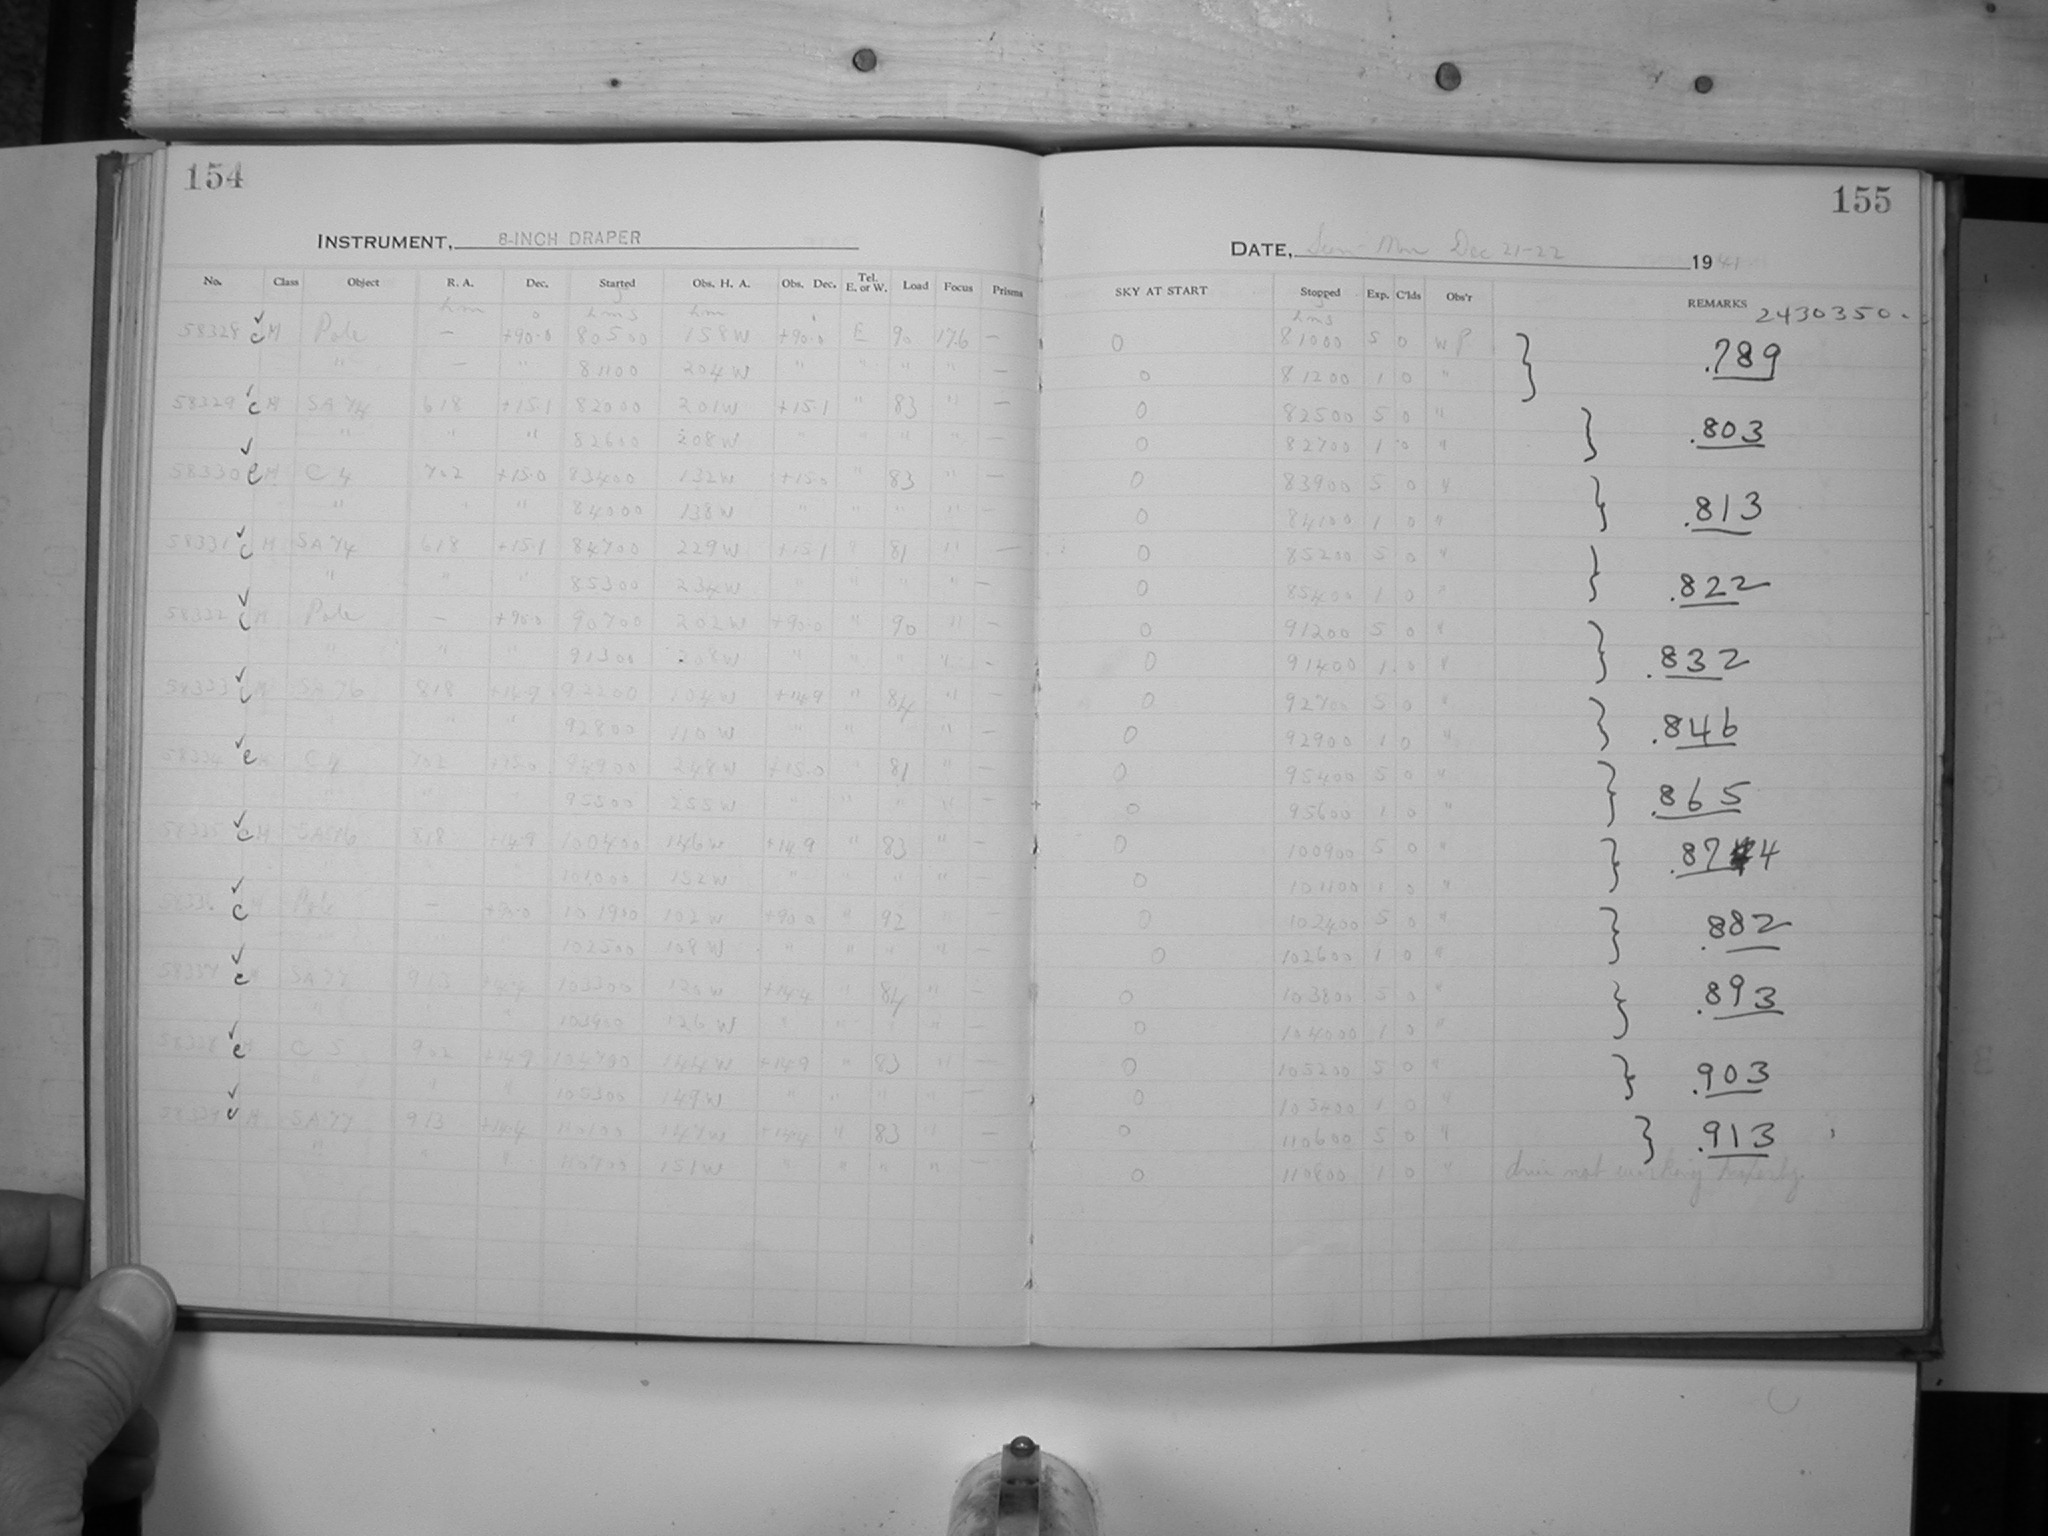 154
INSTRUMENT, 8-INCH DRAPER
No. Class Object R. A. Dec. Started Obs. H. A. Obs. Dec. Tel. E. or W. Load Focus Prisms
h m o h m s h m
58328 C M Pole — +90.0 8 05 00 1 58 W +90.0 E 90 17.6 —
" — " 8 11 00 2 04 W " " " " —
58329 C M SA 74 6 18 +15.1 8 20 00 2 01 W +15.1 " 83 " —
" " " 8 26 00 2 08 W " " " " —
58330 C M C 4 7 02 +15.0 8 34 00 1 32 W +15.0 " 83 " —
" " " 8 40 00 1 38 W " " " " —
58331 C M SA 74 6 18 +15.1 8 47 00 2 29 W +15.1 " 81 " —
" " " 8 53 00 2 34 W " " " " —
58332 C M Pole — +90.0 9 07 00 2 02 W +90.0 " 90 " —
" " " 9 13 00 2 08 W " " " " —
58333 C M SA 76 8 18 +14.9 9 22 00 1 04 W +14.9 " 84 " —
" " " 9 28 00 1 10 W " " " —
58334 C M C 4 7 02 +15.0 9 49 00 2 48 W +15.0 " 81 " —
" " " 9 55 00 2 55 W " " " " —
58335 C M SA 76 8 18 +14.9 10 04 00 1 46 W +14.9 " 83 " —
10 10 00 1 52 W " " " " —
58336 C M Pole — +90.0 10 19 00 1 02 W +90.0 " 92 —
" 10 25 00 1 08 W " " " " —
58337 C SA 77 9 13 +14.4 10 33 00 1 20 W +14.4 " 84 " —
" " 10 39 00 1 26 W " " " " —
58338 C C 5 9 02 +14.9 10 47 00 1 44 W +14.9 " 83 " —
" " " 10 53 00 1 49 W " " " " —
58339 M SA 77 9 13 +14.4 11 01 00 1 47 W +14.4 " 83 " —
" " " 11 07 00 1 51 W " " " " —
155
DATE, Sun - Mon Dec 21-22 1941
SKY AT START Stopped Exp. C'lds Obs'r REMARKS 2430350.
h m s
0 8 10 00 5 0 W P } .789
0 8 12 00 1 0 "
0 8 25 00 5 0 " } .803
0 8 27 00 1 0 "
0 8 39 00 5 0 " } .813
0 8 41 00 1 0 "
0 8 52 00 5 0 " } .822
0 8 54 00 1 0 "
0 9 12 00 5 0 " } .832
0 9 14 00 1 0 "
0 9 27 00 5 0 " } .846
0 9 29 00 1 0 "
0 9 54 00 5 0 " } .865
0 9 56 00 1 0 "
0 10 09 00 5 0 " } .874
0 10 11 00 1 0 "
0 10 24 00 5 0 " } .882
0 10 26 00 1 0 "
0 10 38 00 5 0 " } .893
0 10 40 00 1 0 "
0 10 52 00 5 0 " } .903
0 10 54 00 1 0 "
0 11 06 00 5 0 " } .913
0 11 08 00 1 0 " drive not working properly.